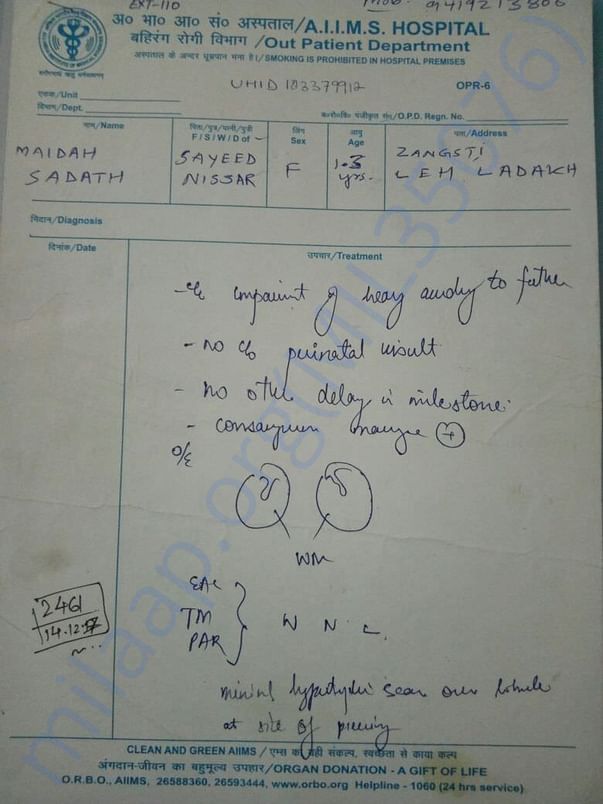 EXT-110
9419213806
अ० भा० आ० सं० अस्पताल/A.I.I.M.S. HOSPITAL
बहिरंग रोगी विभाग /Out Patient Department
अस्पताल के अन्दर धूम्रपान मना है।/SMOKING IS PROHIBITED IN HOSPITAL PREMISES
UHID 103379912
OPR-6
एकक/Unit
विभाग/Dept.
ब०रो०वि० पंजीकृत सं०/O.P.D. Regn. No.
नाम/Name
पिता/पुत्र/पत्नी/पुत्री
F/S/W/D of
लिंग
Sex
आयु
Age
पता/Address
MAIDAH
SADATH
SAYEED
NISSAR
F
1.3
yrs.
ZANGSTI
LEH LADAKH
निदान/Diagnosis
दिनांक/Date
उपचार/Treatment
to father
- no c/o perinatal insult
- no other delay in milestone
- marriage +
O/E
WM
EAC
TM
PAR
W N L
scar over lobule
at site of piercing
2461
14.12.17
CLEAN AND GREEN AIIMS / एम्स का यही संकल्प, स्वच्छता से काया कल्प
अंगदान-जीवन का बहुमूल्य उपहार/ORGAN DONATION - A GIFT OF LIFE
O.R.B.O., AIIMS, 26588360, 26593444, www.orbo.org Helpline - 1060 (24 hrs service)
milaap.org